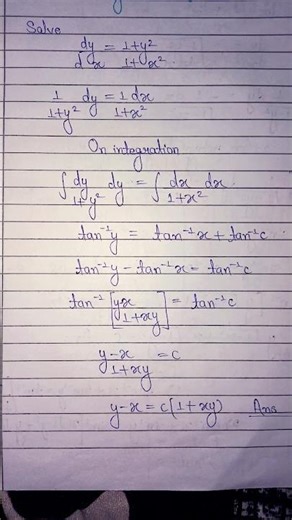 Solve
dy/dx = 1+y²/1+x²
1/1+y² dy = 1/1+x² dx
On integration
∫ dy/1+y² dy = ∫ dx/1+x² dx
tan⁻¹y = tan⁻¹x + tan⁻¹c
tan⁻¹y - tan⁻¹x = tan⁻¹c
tan⁻¹ [y-x/1+xy] = tan⁻¹c
y-x/1+xy = c
y-x = c(1+xy) Ans